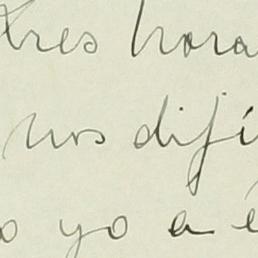 tres hora
nos difí
o yo a é